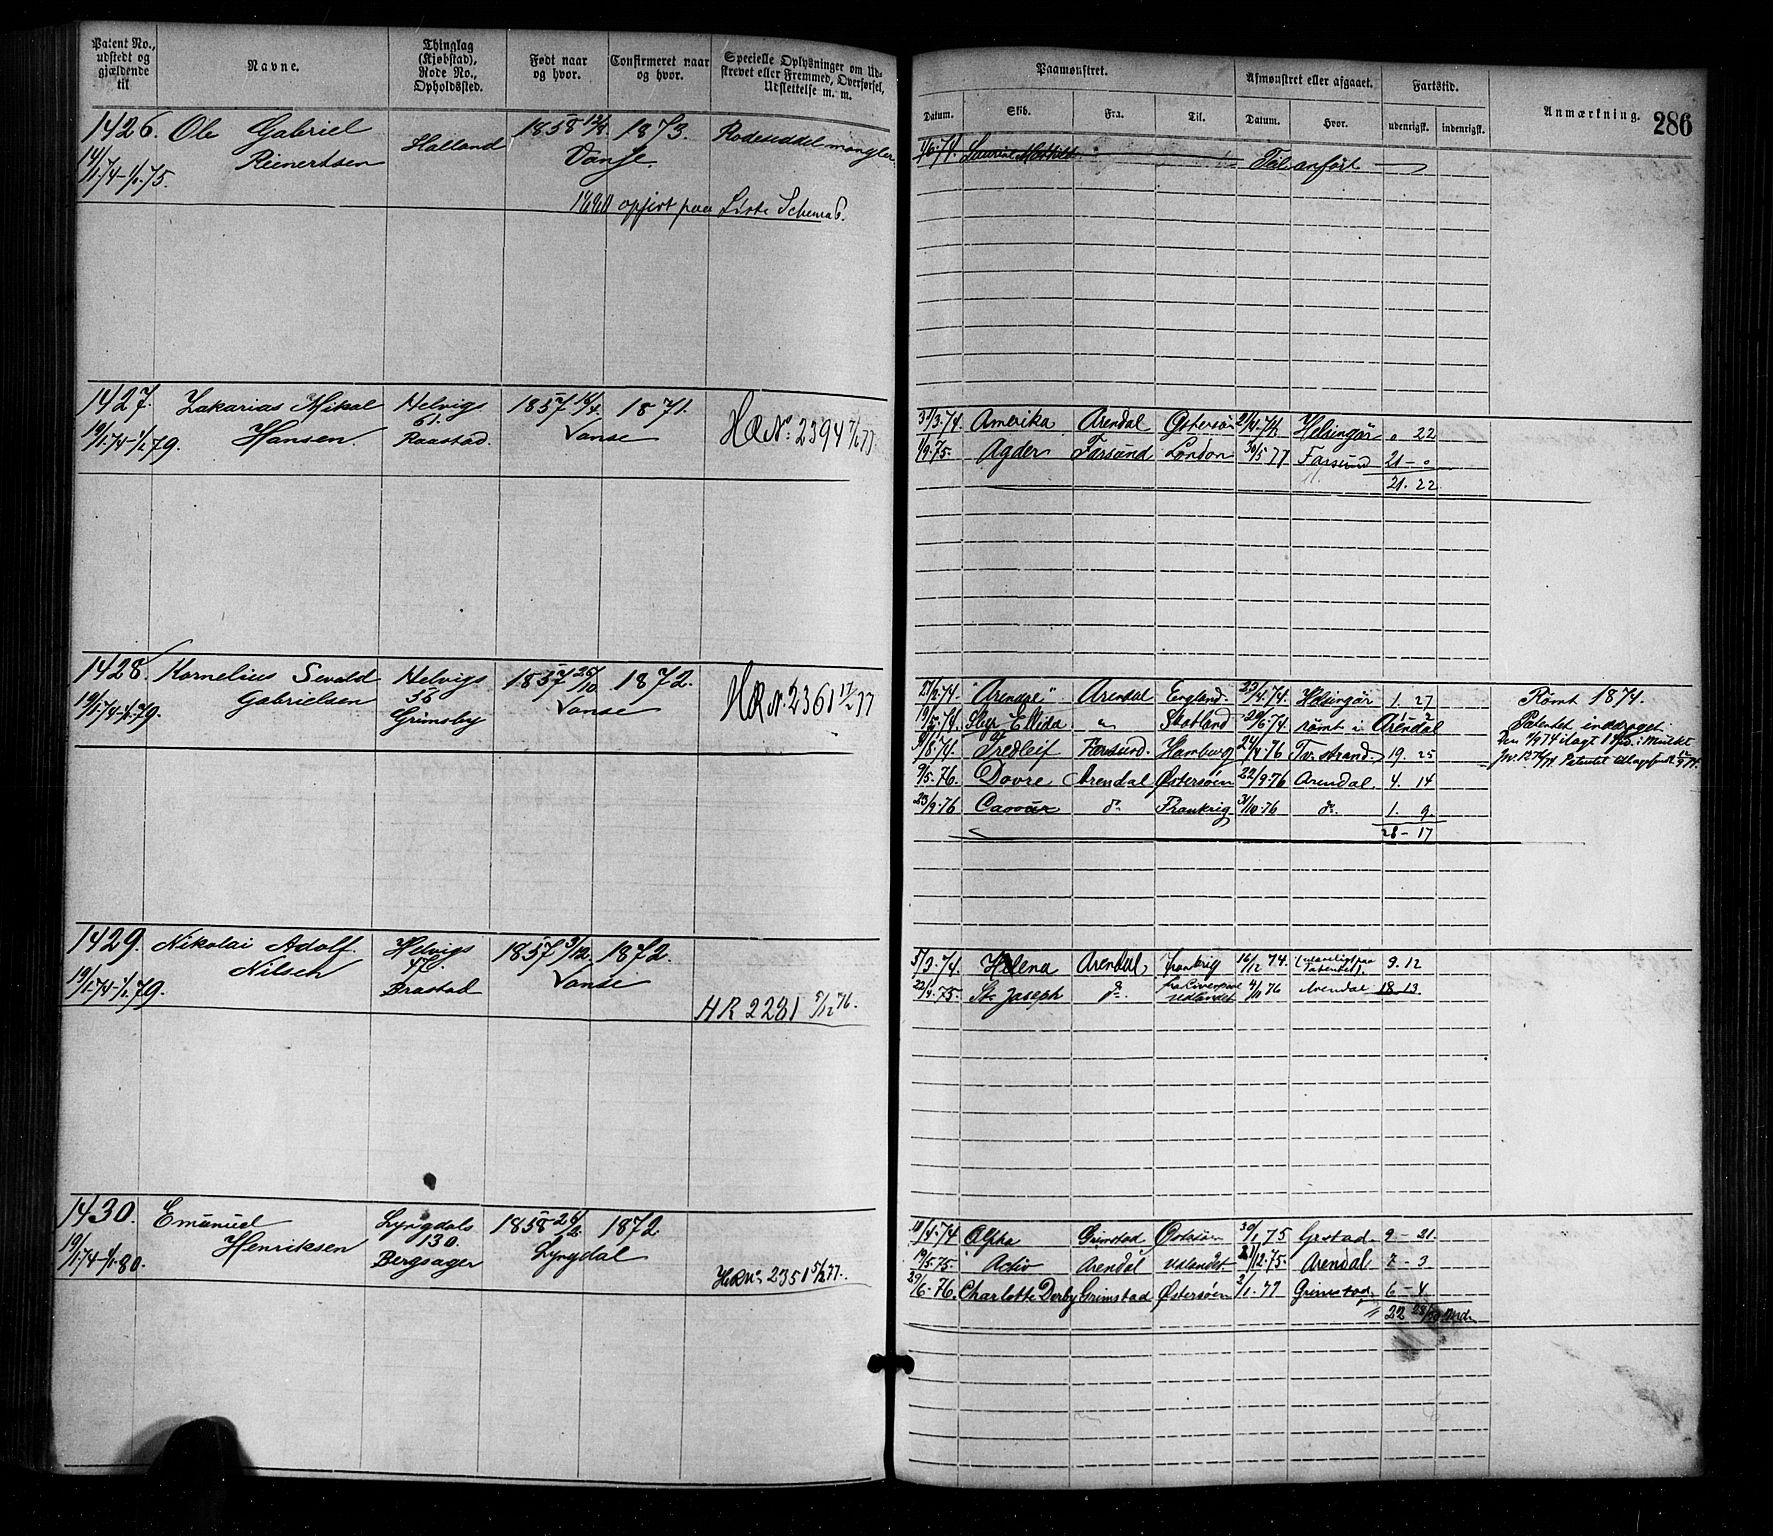 Patent No., udstedt og gjældende til
Navne.
Thinglag (Kjøbstad), Rode No., Opholdssted.
Født naar og hvor.
Confirmeret naar og hvor.
Specielle Oplysninger om Udstrevet eller Fremmed, Overførsel, Udslettelse m. m.
Paamønstret.
Afmønstret eller afgaaet.
Fartstid.
Anmærkning.
286
Datum. Skib. Fra. Til. Datum. Hvor. udenrigsk. indenrigsk.
1426. Ole Gabriel Halland 1858 1873. Rodeseddel mangler
14/1.74-1/1.75. Reinertsen Vanse.
opført paa Liste Schema 6.
1/6.74. Laurine Mathild
1427. Zakarias Mikal Helvigs 1857 14/4. 1871.
19/1.74-1/1.79. Hansen. 61. Raastad. Vanse
H Æ No. 2394 77
31/3.74. Amerika Arendal Østersøen 21/4.74. Helsingør " 22
1/9.75. Agder Farsund London 30/5 77 Farsund 21 - "
21. 22
1428. Kornelius Sevald Helvigs 1857 26/10 1872.
19/1.74-1/1.79. Gabrielsen 33 Grimsby Vanse
H Æ N. 2361 17/2 77
27/2.74. "Arendal" Arendal England. 23/4.74. Helsingør 1. 27
19/5.74. Slp Ellida " Skotland 20/6.74 rømt i Arendal
/8.74. Fredleif Farsund. Hamburg 24/4.76 Tv.strand 19. 25
9/5.76. Dovre Arendal Østersøen 22/9.76 Arendal. 4. 14
23/9.76 Cavour do. Frankrig 31/10.76 do. 1. 9.
28 - 17
Rømt 1874.
Patentet inddraget
1429. Nikolai Adolf Helvigs 1857 3/12. 1872.
19/1.74-1/1.79. Nilsen 47c. Brastad Vanse
HR 2281 9/12 76.
5/3.74. Helena Arendal, Frankrig 16/12 74. 9. 12
22/4.75. St. Joseph do. fra Liverpool udlandet 4/11 76 Arendal 18 13.
1430. Emanuel Lyngdals 1858 26/2. 1872.
19/1.74-1/1.80. Henriksen 130. Bergsager Lyngdal
H Æ No. 2351 5/2 77.
10/4.74 Alpha Grimstad Østersøen 30/1 75 Grstad. 9 - 21.
19/5.75. Activ Arendal udlandet 21/12.75. Arendal 7 - 3
29/6.76. Charlotte Derby Grimstad Østersøen 2/1.77 Grimstad. 6 - 4
22 28/30 Mdr.